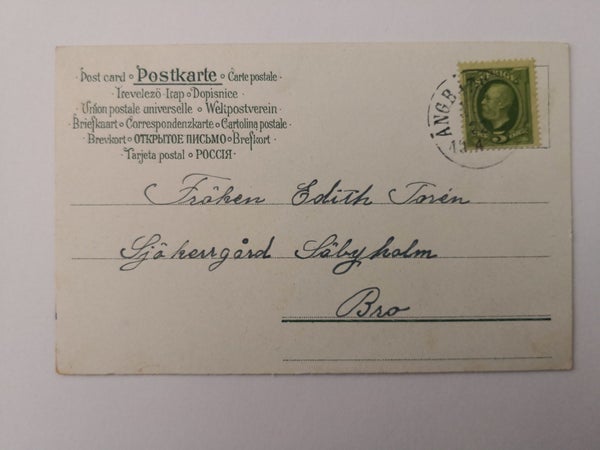 Post card ∘ Postkarte ∘ Carte postale ∘
Irevelező-Iɾap ∘ Dopisnice ∘
Union postale universelle ∘ Weltpostverein ∘
Briefkaart ∘ Correspondenzkarte ∘ Cartolina postale ∘
Brevkort ∘ ОТКРЫТОЕ ПИСЬМО ∘ Brefkort ∘
Tarjeta postal ∘ РОССІЯ ∘
SVERIGE
5
ÅNGB
13. 4
Fröken Edith Torén
Sjökerrgård Säbyholm
Bro